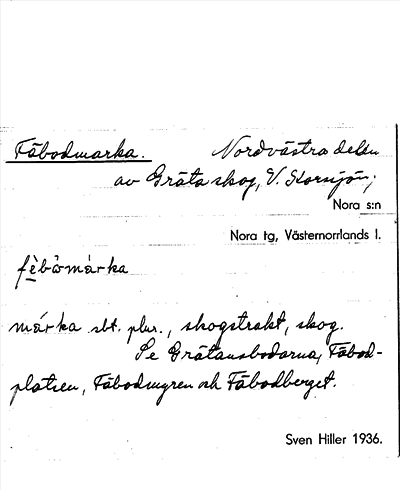 Fäbodmarka. Nordvästra delen
av Gräta skog, V. Storsjön;
Nora s:n
Nora tg, Västernorrlands l.
fèbômárka
márka sbt. plur., skogstrakt, skog.
Se Grätansbodarna, Fäbod-
platsen, Fäbodmyren och Fäbodberget.
Sven Hiller 1936.